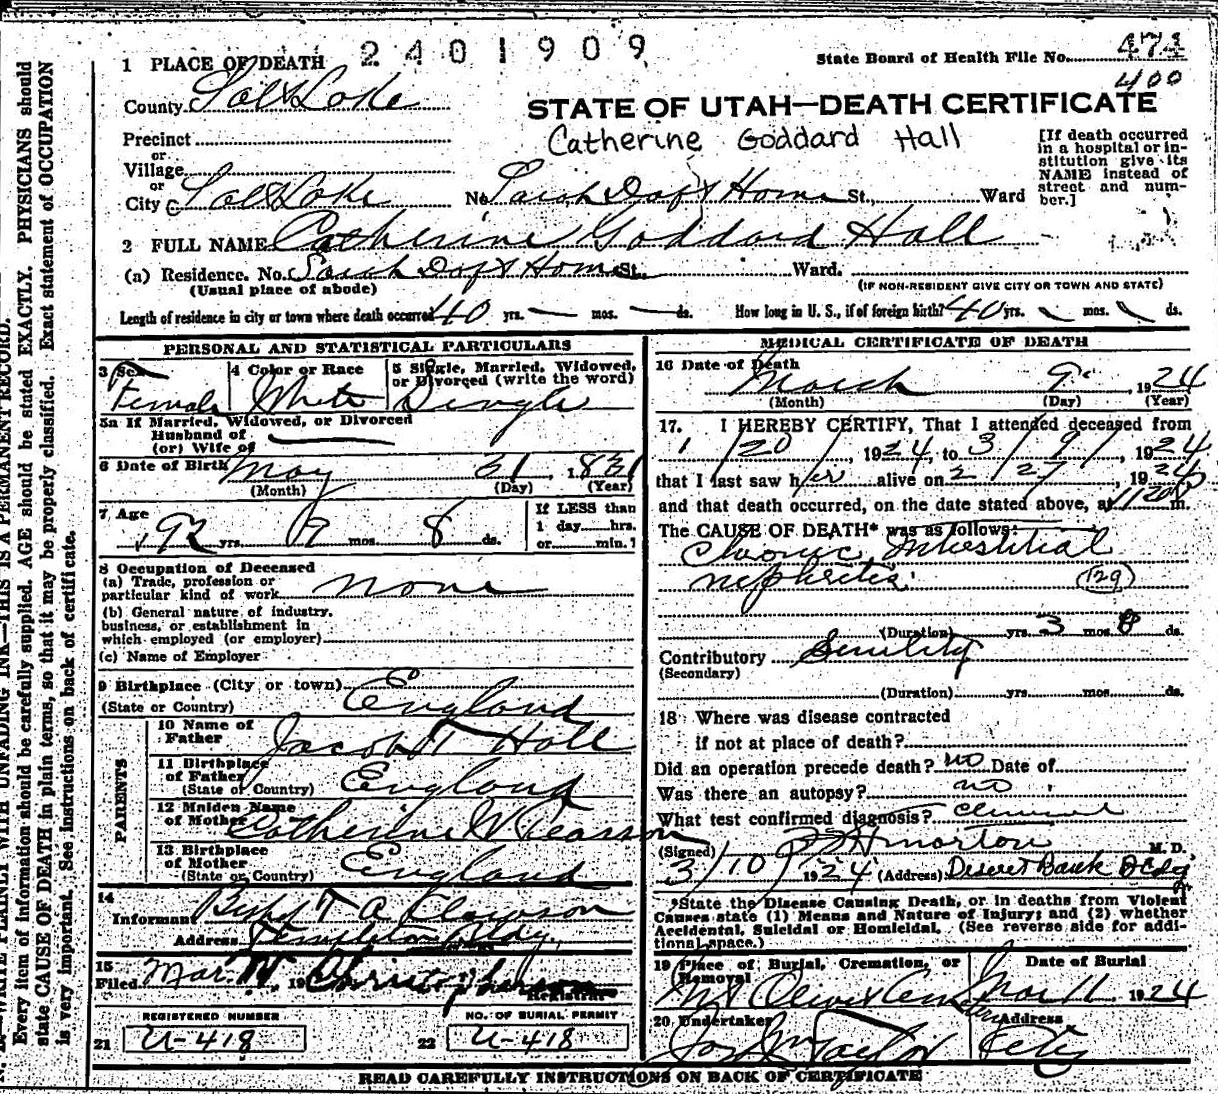 2401909
State Board of Health File No. 474
400
1 PLACE OF DEATH
County Salt Lake
STATE OF UTAH—DEATH CERTIFICATE
Catherine Goddard Hall
Precinct
or
Village
or
City Salt Lake No. Sarah Daft Home St., Ward
[If death occurred in a hospital or institution give its NAME instead of street and number.]
2 FULL NAME Catherine Goddard Hall
(a) Residence. No. Sarah Daft Home St. Ward.
(Usual place of abode) (IF NON-RESIDENT GIVE CITY OR TOWN AND STATE)
Length of residence in city or town where death occurred 40 yrs. — mos. — ds. How long in U. S., if of foreign birth? 40 yrs. mos. ds.
PERSONAL AND STATISTICAL PARTICULARS
3 Sex Female
4 Color or Race White
5 Single, Married, Widowed, or Divorced (write the word) Single
5a If Married, Widowed, or Divorced
Husband of
(or) Wife of
6 Date of Birth May 31 1831
(Month) (Day) (Year)
7 Age 92 yrs. 9 mos. 8 ds.
If LESS than
1 day hrs.
or min. ?
8 Occupation of Deceased
(a) Trade, profession or
particular kind of work none
(b) General nature of industry.
business, or establishment in
which employed (or employer)
(c) Name of Employer
9 Birthplace (City or town)
(State or Country) England
PARENTS
10 Name of
Father Jacob T Hall
11 Birthplace
of Father
(State or Country) England
12 Maiden Name
of Mother Catherine W Pearson
13 Birthplace
of Mother
(State or Country) England
14
Informant T A Clawson
Address Templeton Bldg.
15
Filed Mar. 19
Registrar
REGISTERED NUMBER
21 U-418
NO. OF BURIAL PERMIT
22 U-418
MEDICAL CERTIFICATE OF DEATH
16 Date of Death
March 9 1924
(Month) (Day) (Year)
17. I HEREBY CERTIFY, That I attended deceased from
1/20/, 1924, to 3/9/, 1924
that I last saw her alive on 2/27/, 1924
and that death occurred, on the date stated above, at 1120 P m.
The CAUSE OF DEATH* was as follows:
Chronic Interstitial
nephritis. (129)
(Duration) yrs. 3 mos 8 ds.
Contributory Senility
(Secondary)
(Duration) yrs. mos. ds.
18 Where was disease contracted
if not at place of death?
Did an operation precede death? no Date of
Was there an autopsy? no
What test confirmed diagnosis? clinical
(Signed) Morton M. D.
3/10 1924 (Address) Deseret Bank Bldg
*State the Disease Causing Death, or in deaths from Violent
Causes state (1) Means and Nature of Injury; and (2) whether
Accidental, Suicidal or Homicidal. (See reverse side for addi-
tional space.)
19 Place of Burial, Cremation, or
Removal
Mt Olivet Cemetery
Date of Burial
Mar 11 1924
20 Undertaker
Jos Wm Taylor
Address
City
READ CAREFULLY INSTRUCTIONS ON BACK OF CERTIFICATE
WRITE PLAINLY WITH UNFADING INK—THIS IS A PERMANENT RECORD.
Every item of information should be carefully supplied. AGE should be stated EXACTLY. PHYSICIANS should
state CAUSE OF DEATH in plain terms, so that it may be properly classified. Exact statement of OCCUPATION
is very important. See instructions on back of certificate.